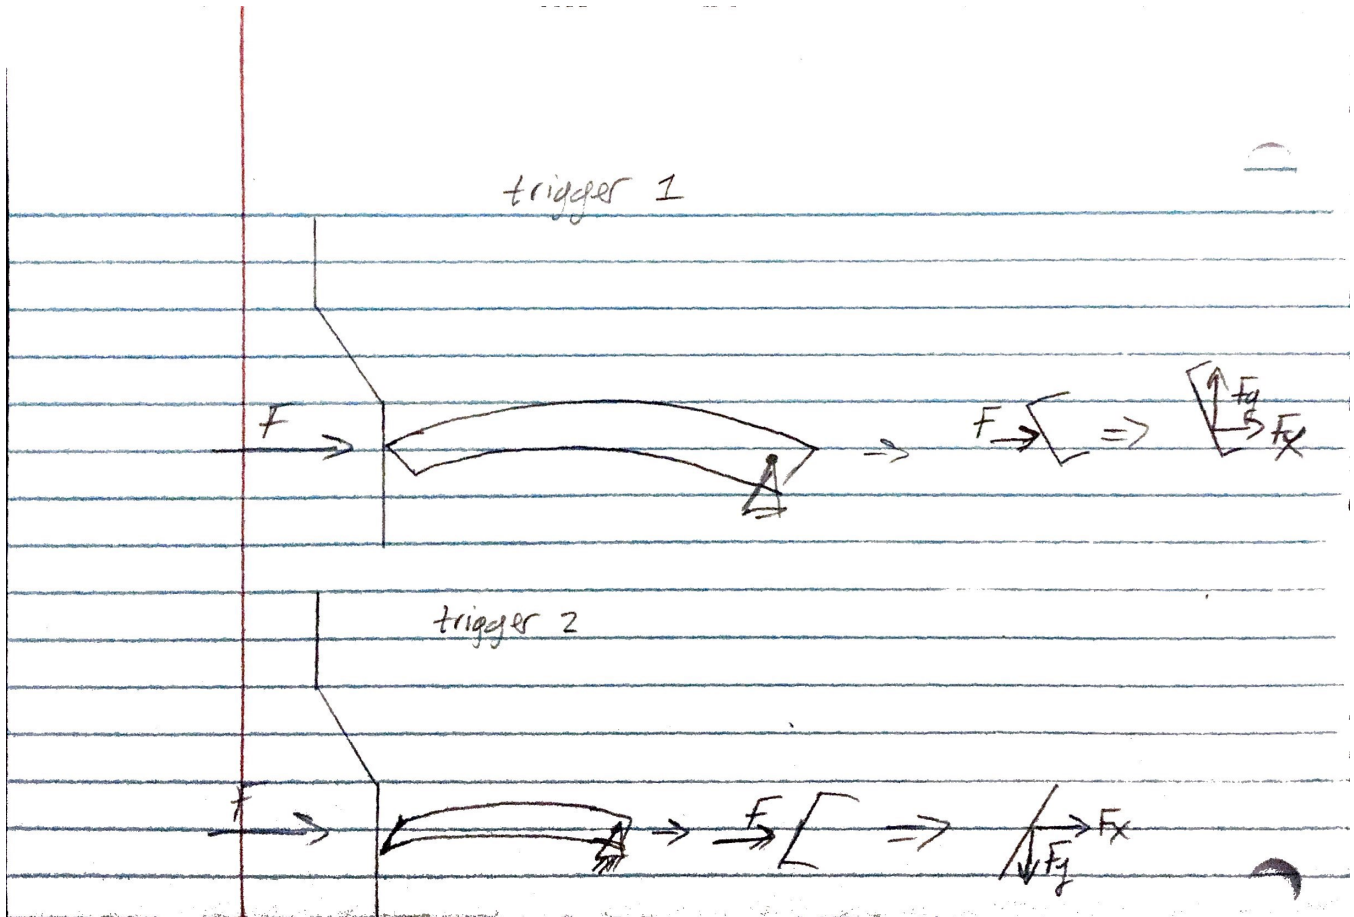 trigger 1
F
F
Fy
Fx
trigger 2
F
F
Fx
Fy